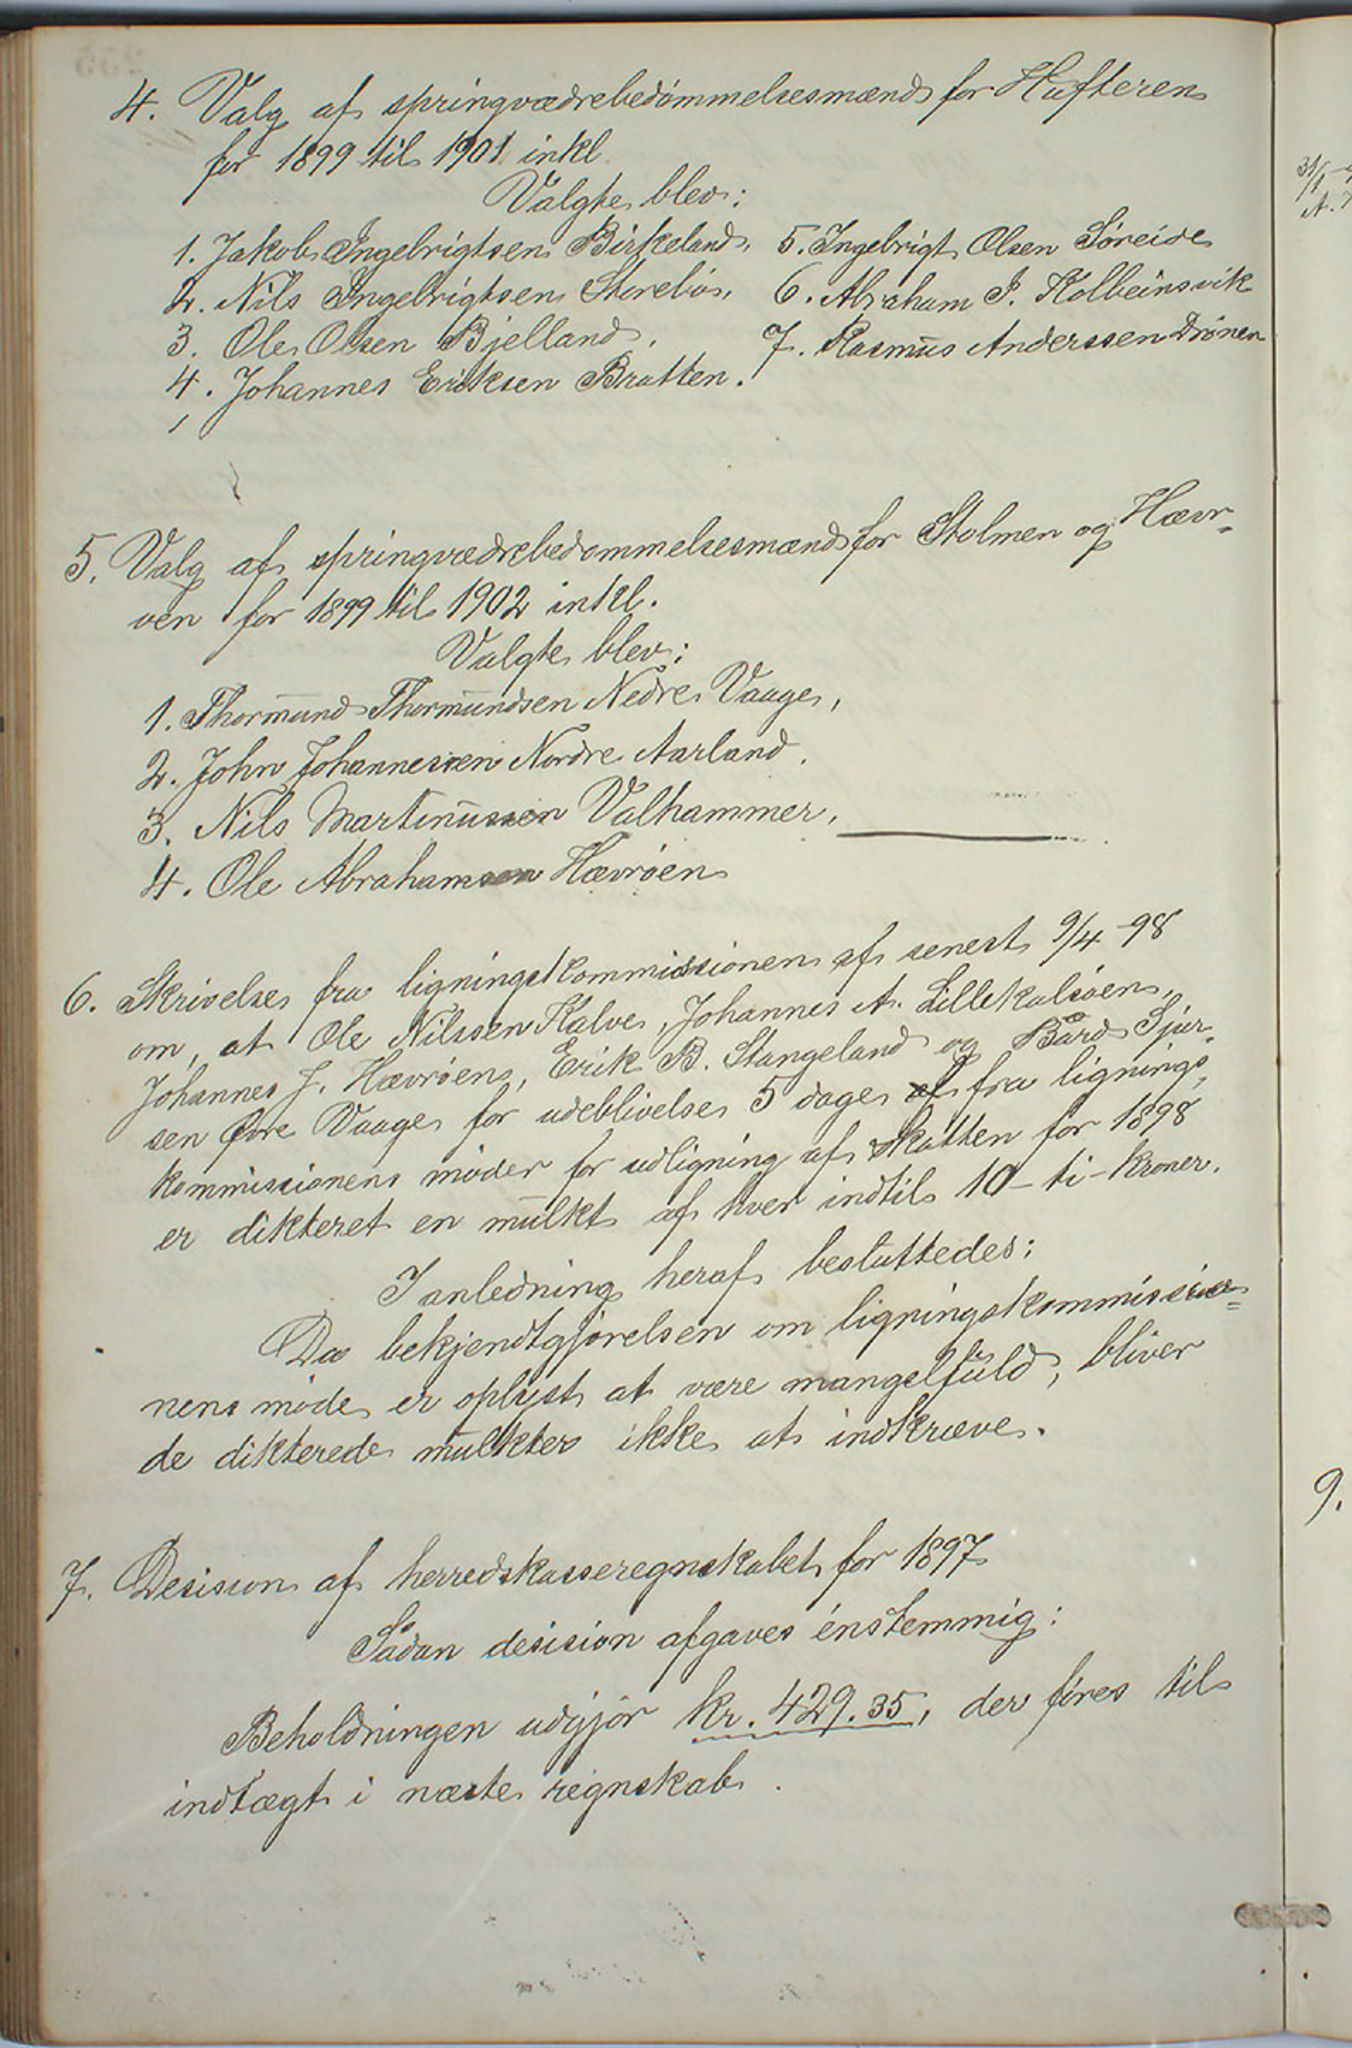 4. Valg af springvædrebedømmelsesmænd for Hufteren
for 1899 til 1901 inkl.
Valgte blev:
1. Jakob Ingebrigtsen Birkeland,
2. Nils Ingebrigtsen Storebø,
3. Ole Olsen Bjelland,
4. Johannes Eriksen Bratten.
5. Ingebrigt Olsen Søreide
6. Abraham I. Kolbeinsvik
7. Rasmus Anderssen Drönen
5. Valg af springvædrebedømmelsesmænd for Stolmen og Hævr-
øen for 1899 til 1902 inkl.
Valgte blev:
1. Thormund Thormundsen Nedre Vaage,
2. John Johannessen Nordre Aarland,
3. Nils Martinussen Valhammer,
4. Ole Abrahamsen Hævrøen
6. Skrivelse fra ligningskommissionen af senest 9/4 -98
om, at Ole Nilssen Kalve, Johannes A. Lillekalsøen,
Johannes J. Hævrøen, Erik B. Stangeland og Bård Sjur-
sen Øvre Vaage for udeblivelse 5 dage fra lignings-
kommissionens møder for udligning af skatten for 1898
er dikteret en mulkt af hver indtil 10 - ti - kroner.
I anledning heraf besluttedes:
Da bekjendtgjørelsen om ligningskommissio=
nens møde er oplyst at være mangelfuld, bliver
de dikterede mulkter ikke at indkræve.
7. Desision af herredskasseregnskabet for 1897
Sådan desision afgaves énstemmig:
Beholdningen udgjør kr. 429.35, der føres til
indtægt i næste regnskab.
31/1
A.
9.